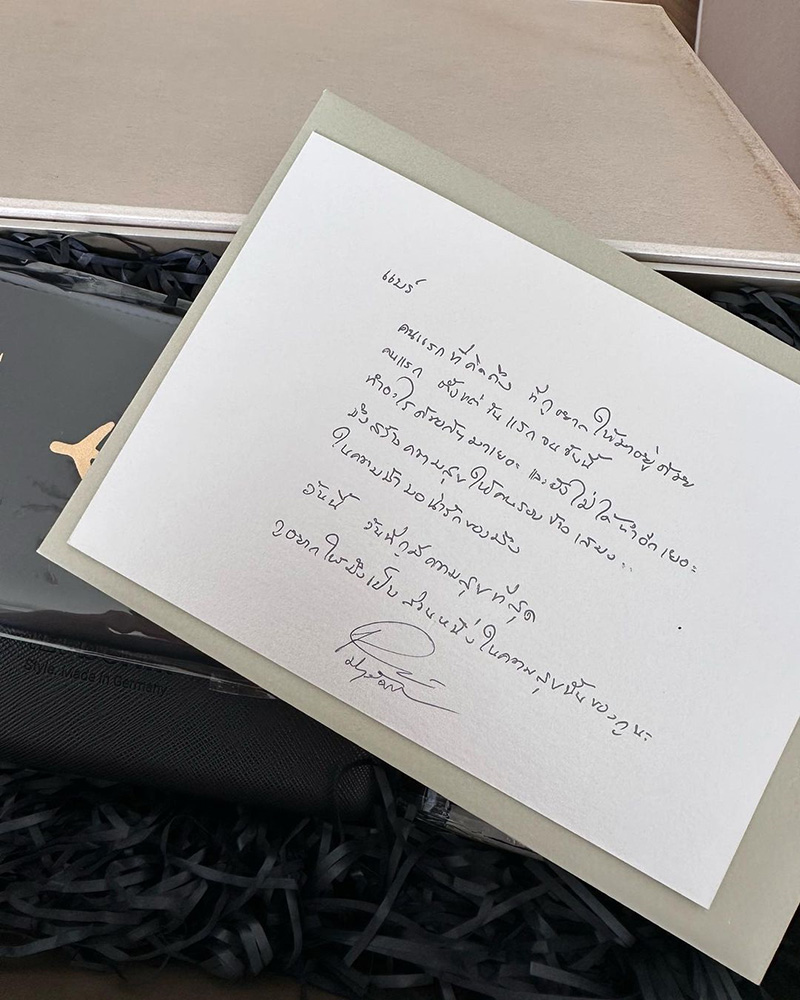 แบร์
คนแรกที่คิดถึง ที่กูอยากให้มาอยู่ด้วย
คนแรก ตั้งแต่วันแรก จนวันนี้
ทำอะไรด้วยกันมาเยอะ และยังไม่ได้ทำอีกเยอะ
มึงสร้างความสุขให้คนรอบข้างเสมอ
ในความน่ารักของมึง
วันนี้ วันที่กูมีความสุขที่สุด
กูอยากให้มึงเป็นส่วนหนึ่งในความสุขนั้นของกูนะ
Style. Made in Germany